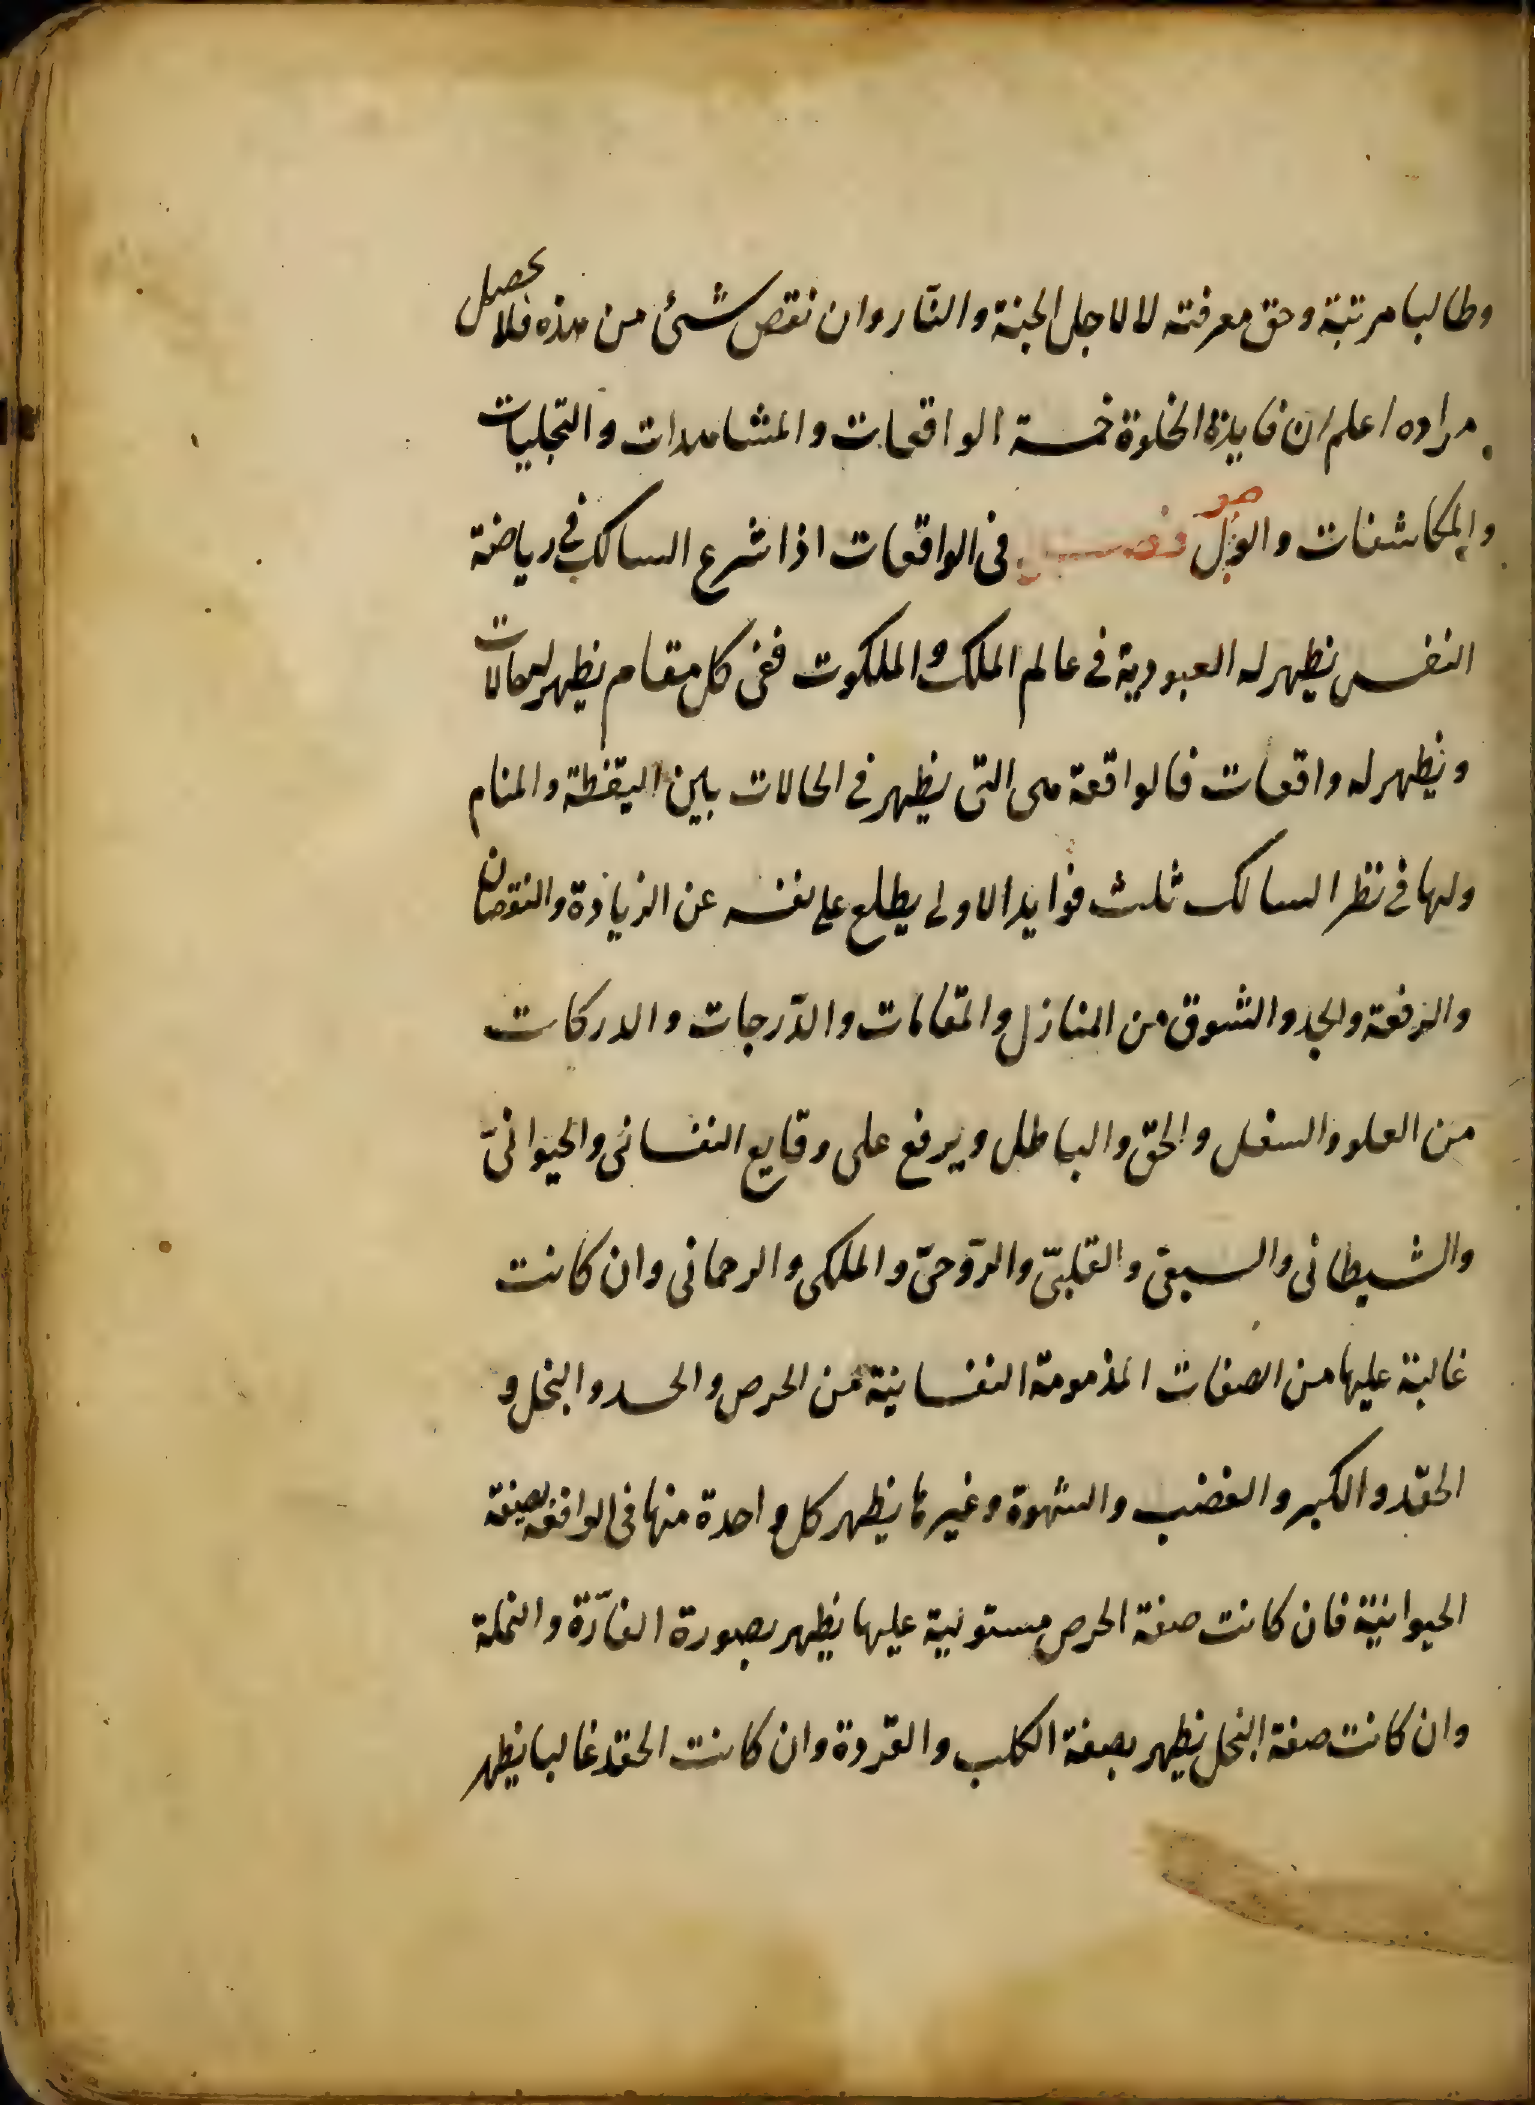 وطالبا مرتبة وحق معرفته لا لاجل الجنة والنّار وان نقص شئ من هذه فلا يحصل
مراده اعلم ان فايدة الخلوة خمسة الواقعات والمشاهدات والتجليات
والمكاشفات والوصل فصل فى الواقعات اذا شرع السالك فى رياضة
النفس يظهر له العبودية فى عالم الملك والملكوت ففى كل مقام يظهر له حالات
ويظهر له واقعات فالواقعة هى التى يظهر فى الحالات بين اليقظة والمنام
ولها فى نظر السالك ثلث فوايد الاولى يطلع على نفسه عن الزيادة والنقصان
والرفعة والجد والشوق من المنازل والمقامات والدّرجات والدركات
من العلو والسفل والحقّ والباطل ويرفع على وقايع النفسانى والحيوانىّ
والشيطانى والسبعىّ والقلبىّ والرّوحىّ والملكى والرحمانى وان كانت
غالبة عليها من الصفات المذمومة النفسانية من الحرص والحسد والبخل و
الحقد والكبر والغضب والشهوة وغيرها يظهر كل واحدة منها فى الواقعه بصفة
الحيوانيّة فان كانت صفة الحرص مستولية عليها يظهر بصورة الفارة والنملة
وان كانت صفة البخل يظهر بصفة الكلب والقردة وان كانت الحقد غالبا يظهر